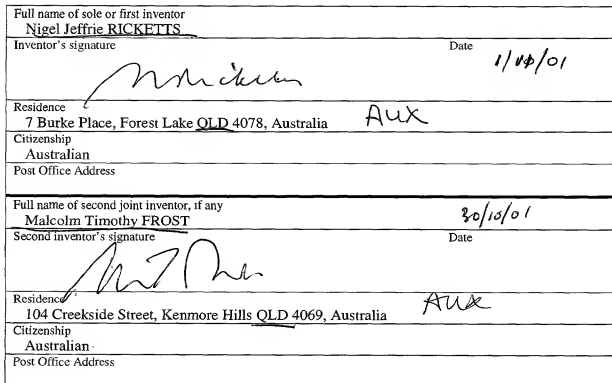 Full name of sole or first inventor
Nigel Jeffrie RICKETTS
Inventor's signature Date
1/10/01
Residence
7 Burke Place, Forest Lake QLD 4078, Australia AUX
Citizenship
Australian
Post Office Address
Full name of second joint inventor, if any
Malcolm Timothy FROST 30/10/01
Second inventor's signature Date
Residence
104 Creekside Street, Kenmore Hills QLD 4069, Australia AUX
Citizenship
Australian
Post Office Address